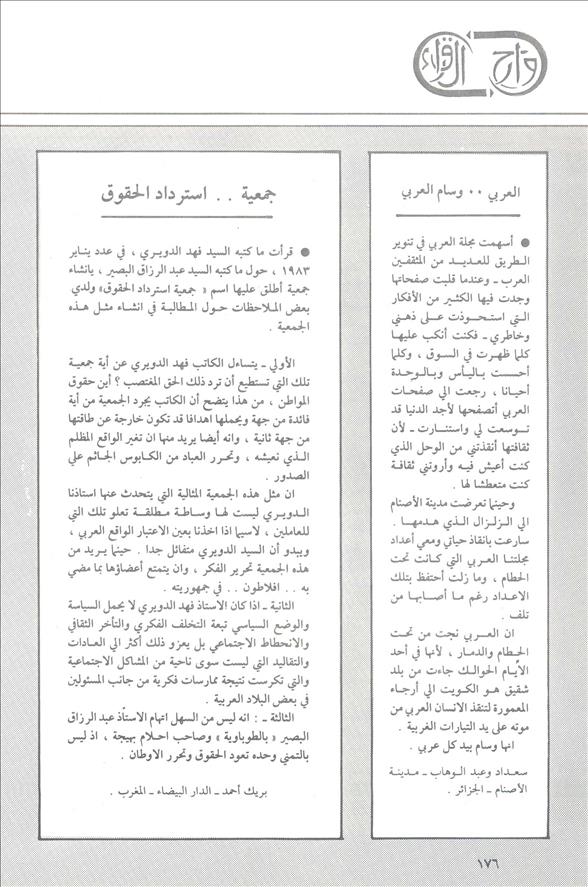 وارحة القراء
العربي .. وسام العربي
● أسهمت مجلة العربي في تنوير
الطريق للعديد من المثقفين
العرب ـ وعندما قلبت صفحاتها
وجدت فيها الكثير من الأفكار
التي استحوذت على ذهني
وخاطري ـ فكنت أنكب عليها
كلما ظهرت في السوق ، وكلما
أحست باليأس وبالوحدة
أحيانا ، رجعت الي صفحات
العربي أتصفحها لأجد الدنيا قد
توسعت لي واستنارت ـ لأن
ثقافتها أنقذتني من الوحل الذي
كنت أعيش فيه وأروتني ثقافة
كنت متعطشا لها .
وحينما تعرضت مدينة الأصنام
الي الزلزال الذي هدمها .
سارعت بانقاذ حياتي ومعي أعداد
مجلتنا العربي التي كانت تحت
الحطام ، وما زلت أحتفظ بتلك
الاعداد رغم ما أصابها من
تلف .
ان العربي نجت من تحت
الحطام والدمار ، لأنها في أحد
الأيام الحوالك جاءت من بلد
شقيق هو الكويت الي أرجاء
المعمورة لتنقذ الانسان العربي من
موته على يد التيارات الغربية .
انها وسام بيد كل عربي .
سعداد وعبد الوهاب ـ مدينة
الأصنام ـ الجزائر .
جمعية .. استرداد الحقوق
● قرأت ما كتبه السيد فهد الدويري ، في عدد يناير
١٩٨٣ ، حول ما كتبه السيد عبد الرزاق البصير ، بانشاء
جمعية أطلق عليها اسم « جمعية استرداد الحقوق» ولدي
بعض الملاحظات حول المطالبة في انشاء مثل هذه
الجمعية .
الأولي ـ يتساءل الكاتب فهد الدويري عن أية جمعية
تلك التي تستطيع أن ترد ذلك الحق المغتصب ؟ أين حقوق
المواطن ، من هذا يتضح أن الكاتب يجرد الجمعية من أية
فائدة من جهة ويحملها اهدافا قد تكون خارجة عن طاقتها
من جهة ثانية ، وانه أيضا يريد منها ان تغير الواقع المظلم
الذي نعيشه ، وتحرر العباد من الكابوس الجاثم علي
الصدور .
ان مثل هذه الجمعية المثالية التي يتحدث عنها استاذنا
الدويري ليست لها وساطة مطلقة تعلو تلك التي
للعاملين ، لاسيما اذا اخذنا بعين الاعتبار الواقع العربي ،
ويبدو أن السيد الدويري متفائل جدا . حينما يريد من
هذه الجمعية تحرير الفكر ، وان يتمتع أعضاؤها بما مضي
به .. افلاطون .. في جمهوريته .
الثانية ـ اذا كان الاستاذ فهد الدويري لا يحمل السياسة
والوضع السياسي تبعة التخلف الفكري والتأخر الثقافي
والانحطاط الاجتماعي بل يعزو ذلك أكثر الي العادات
والتقاليد التي ليست سوى ناحية من المشاكل الاجتماعية
والتي تكرست نتيجة ممارسات فكرية من جانب المسئولين
في بعض البلاد العربية .
الثالثة ـ : انه ليس من السهل اتهام الاستاذ عبد الرزاق
البصير «بالطوباوية » وصاحب احلام بهيجة ، اذ ليس
بالتمني وحده تعود الحقوق وتحرر الاوطان .
بريك أحمد ـ الدار البيضاء ـ المغرب .
١٧٦